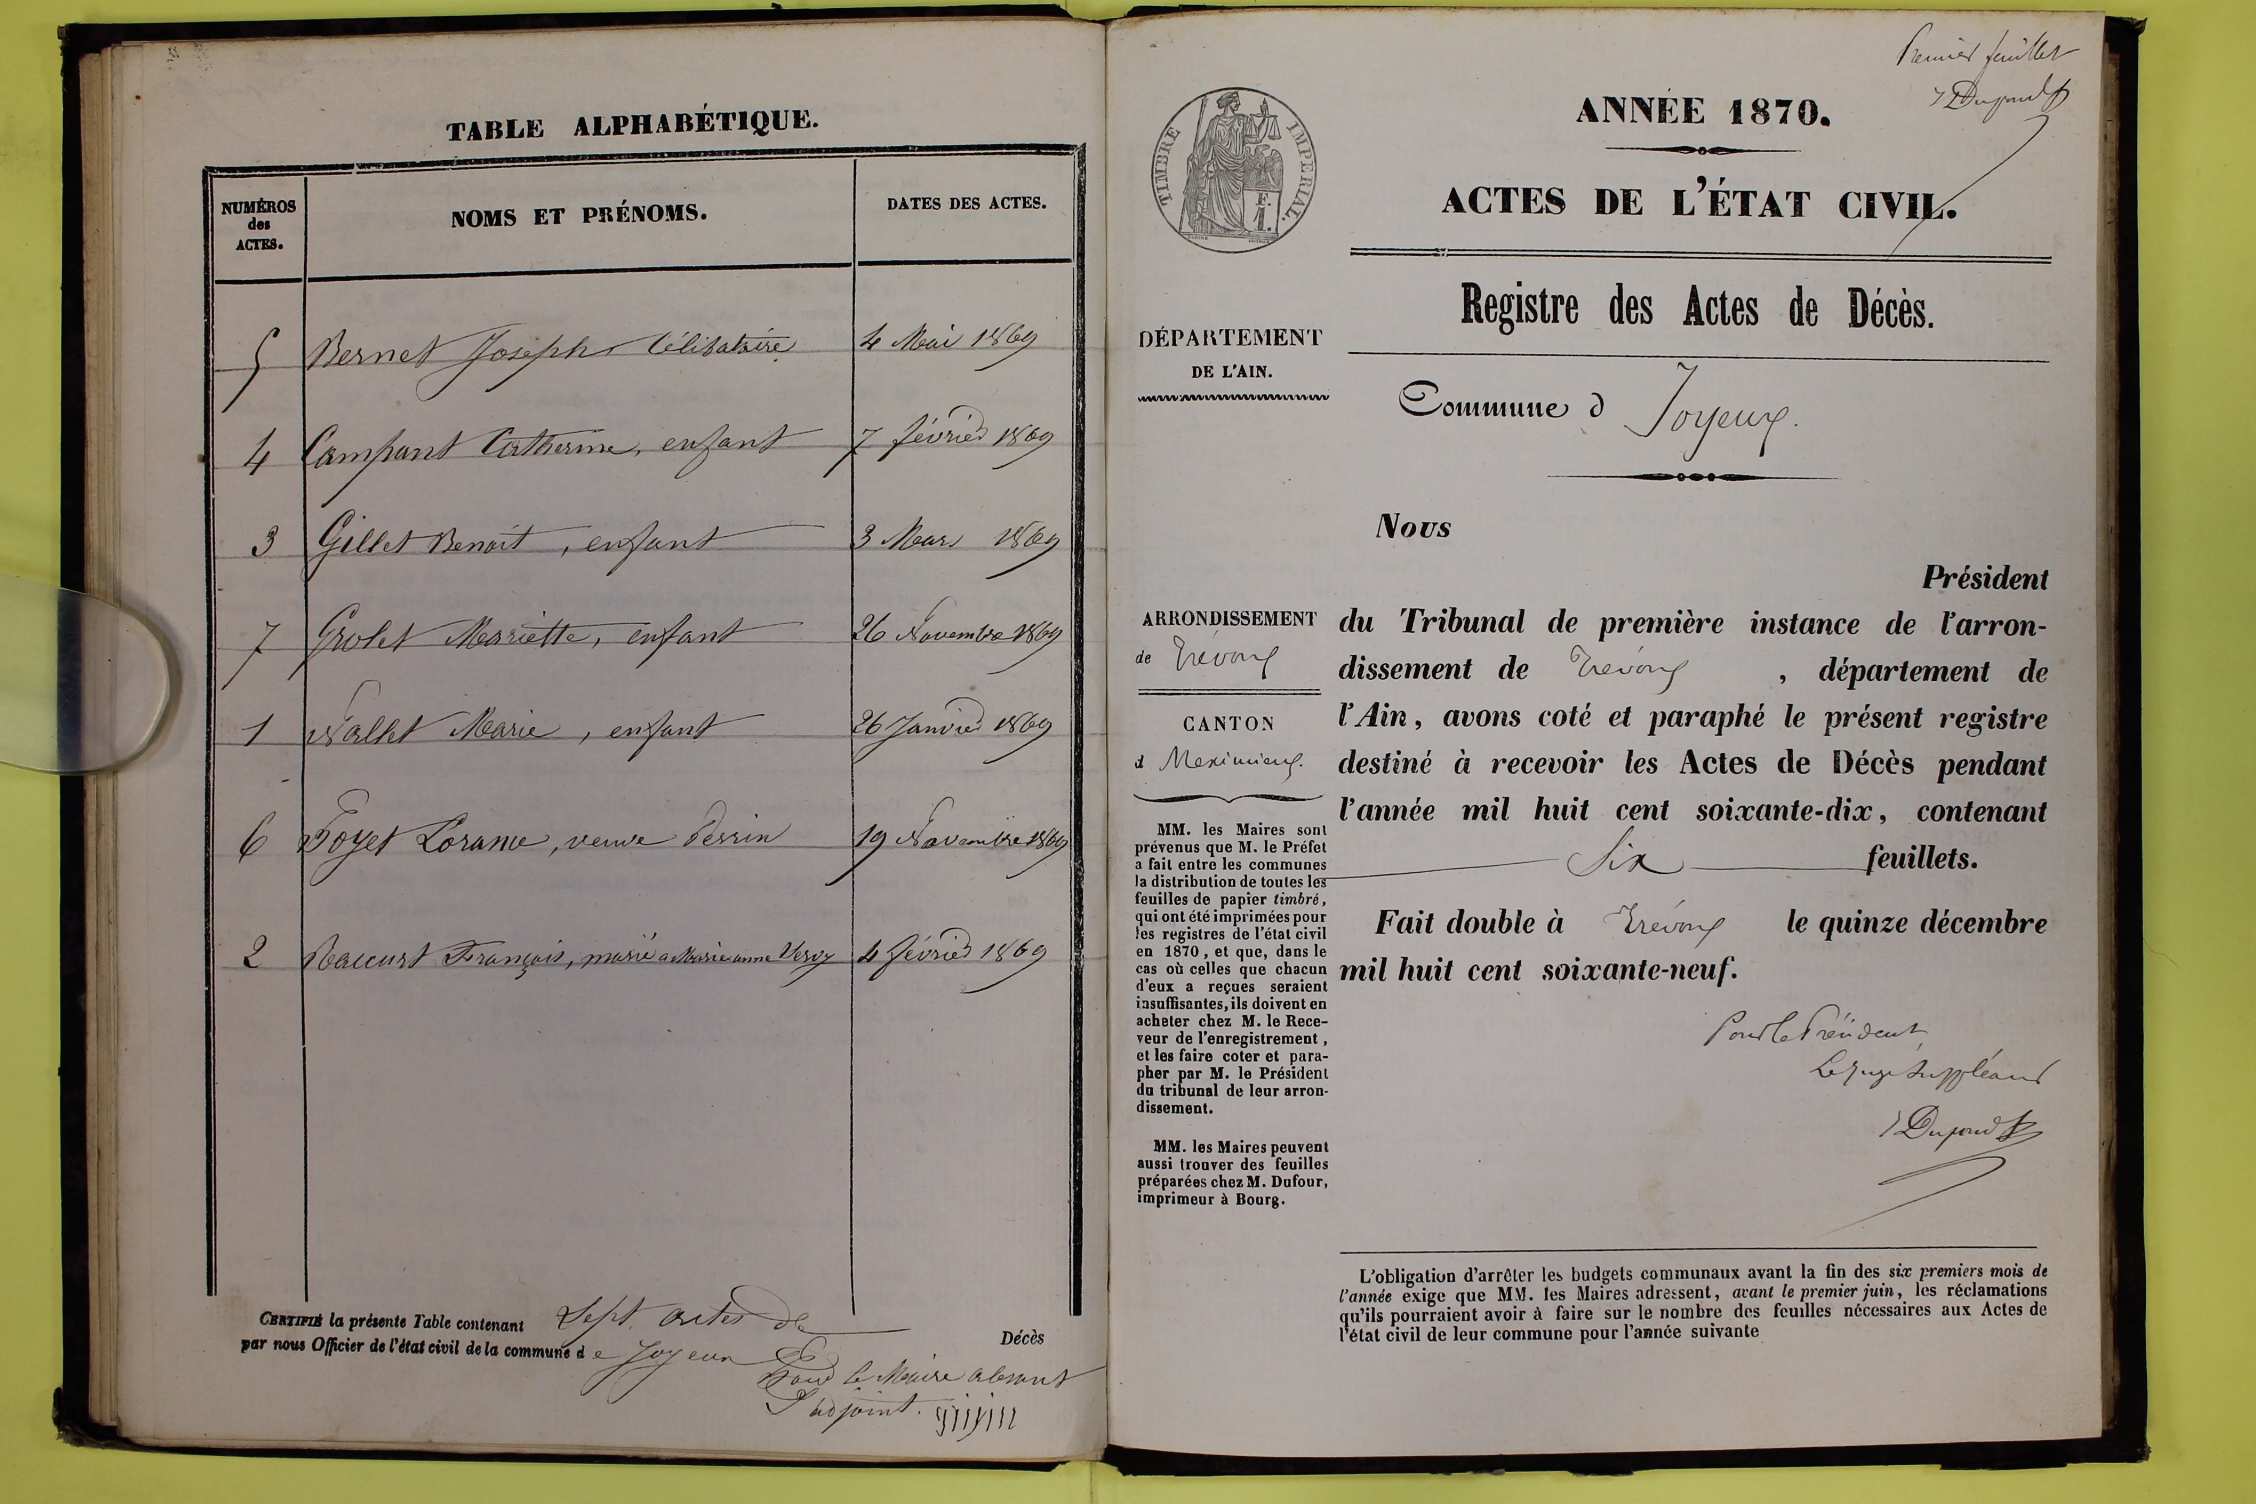 TABLE ALPHABÉTIQUE.
NUMÉROS
des
ACTES.
NOMS ET PRÉNOMS.
DATES DES ACTES.
5 Bernet Joseph Célibataire 4 Mai 1869
4 Campant Catherine, enfant 7 février 1869
3 Gillet Benoit, enfant 3 Mars 1869
7 Grolet Marriette, enfant 26 Novembre 1869
1 Nallet Marie, enfant 26 Janvier 1869
6 Poyet Lorance, veuve Perrin 19 Novembre 1869
2 Raccurt François, marié a Marie anne 4 février 1869
CERTIFIÉ la présente Table contenant Sept actes de
Décès
par nous Officier de l'état civil de la commune de Joyeux
Pour le Maire absent
L'adjoint.
Premier feuillet
Dupond
TIMBRE IMPERIAL.
F.
1.
ANNÉE 1870.
ACTES DE L'ÉTAT CIVIL.
Registre des Actes de Décès.
DÉPARTEMENT
DE L'AIN.
Commune d Joyeux.
Nous
Président
du Tribunal de première instance de l'arron-
dissement de Trévoux, département de
l'Ain, avons coté et paraphé le présent registre
destiné à recevoir les Actes de Décès pendant
l'année mil huit cent soixante-dix, contenant
Six feuillets.
Fait double à Trévoux le quinze décembre
mil huit cent soixante-neuf.
Pour le Président
Le Juge Suppléant
Dupond
ARRONDISSEMENT
de Trévoux
CANTON
d Meximieux.
MM. les Maires sont
prévenus que M. le Préfet
a fait entre les communes
la distribution de toutes les
feuilles de papier timbré,
qui ont été imprimées pour
les registres de l'état civil
en 1870, et que, dans le
cas où celles que chacun
d'eux a reçues seraient
insuffisantes, ils doivent en
acheter chez M. le Rece-
veur de l'enregistrement,
et les faire coter et para-
pher par M. le Président
du tribunal de leur arron-
dissement.
MM. les Maires peuvent
aussi trouver des feuilles
préparées chez M. Dufour,
imprimeur à Bourg.
L'obligation d'arrêter les budgets communaux avant la fin des six premiers mois de
l'année exige que MM. les Maires adressent, avant le premier juin, les réclamations
qu'ils pourraient avoir à faire sur le nombre des feuilles nécessaires aux Actes de
l'état civil de leur commune pour l'année suivante